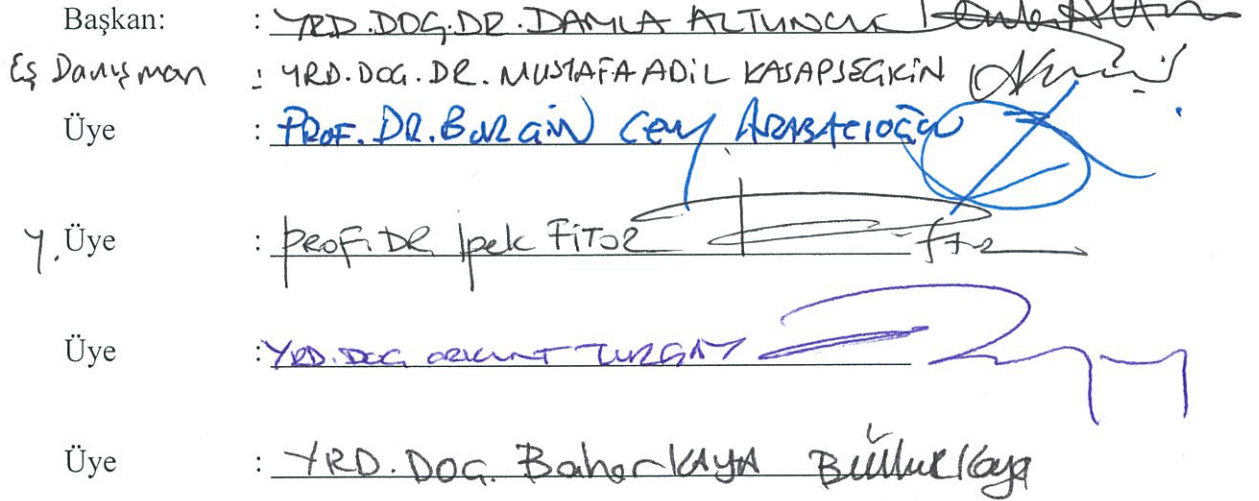 Başkan: : YRD.DOÇ.DR. DAMLA ALTUNCU
Eş Danışman : YRD.DOÇ.DR. MUSTAFA ADİL KASAPSEÇKİN
Üye : PROF. DR. BURÇİN Cem ARABACIOĞLU
Y. Üye : PROF. DR İpek FİTOZ
Üye : YRD. DOÇ. ORKUNT TURGAY
Üye : YRD. DOÇ. Bahar KAYA